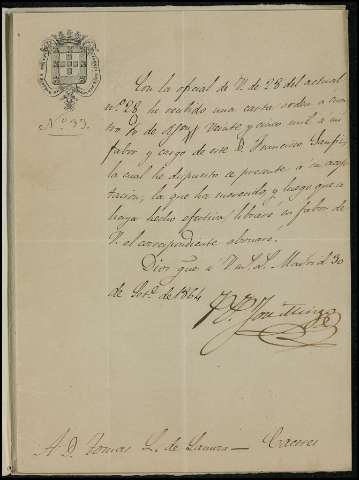 Nº 33.
Con la oficial de V. de 28 del actual
nº 28 he recibido una carta orden a cua
tro d/v de veinte y cinco mil a mi
favor y cargo de este D. Francisco
la cual he dispuesto se presente a su acep
tacion, la que ha merecido, y luego que se
haya hecho efectiva, librare en favor de
V. el correspondiente abonaré.
Dios gue a V. m. a. Madrid 30
de de 1864
A D. Tomas L. de Caceres